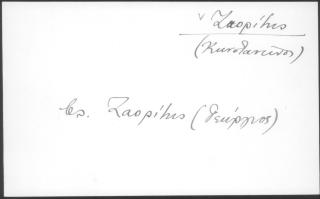 Ζαορίτης
(Κωνσταντῖνος)
βλ. Ζαορίτης (Γεώργιος)